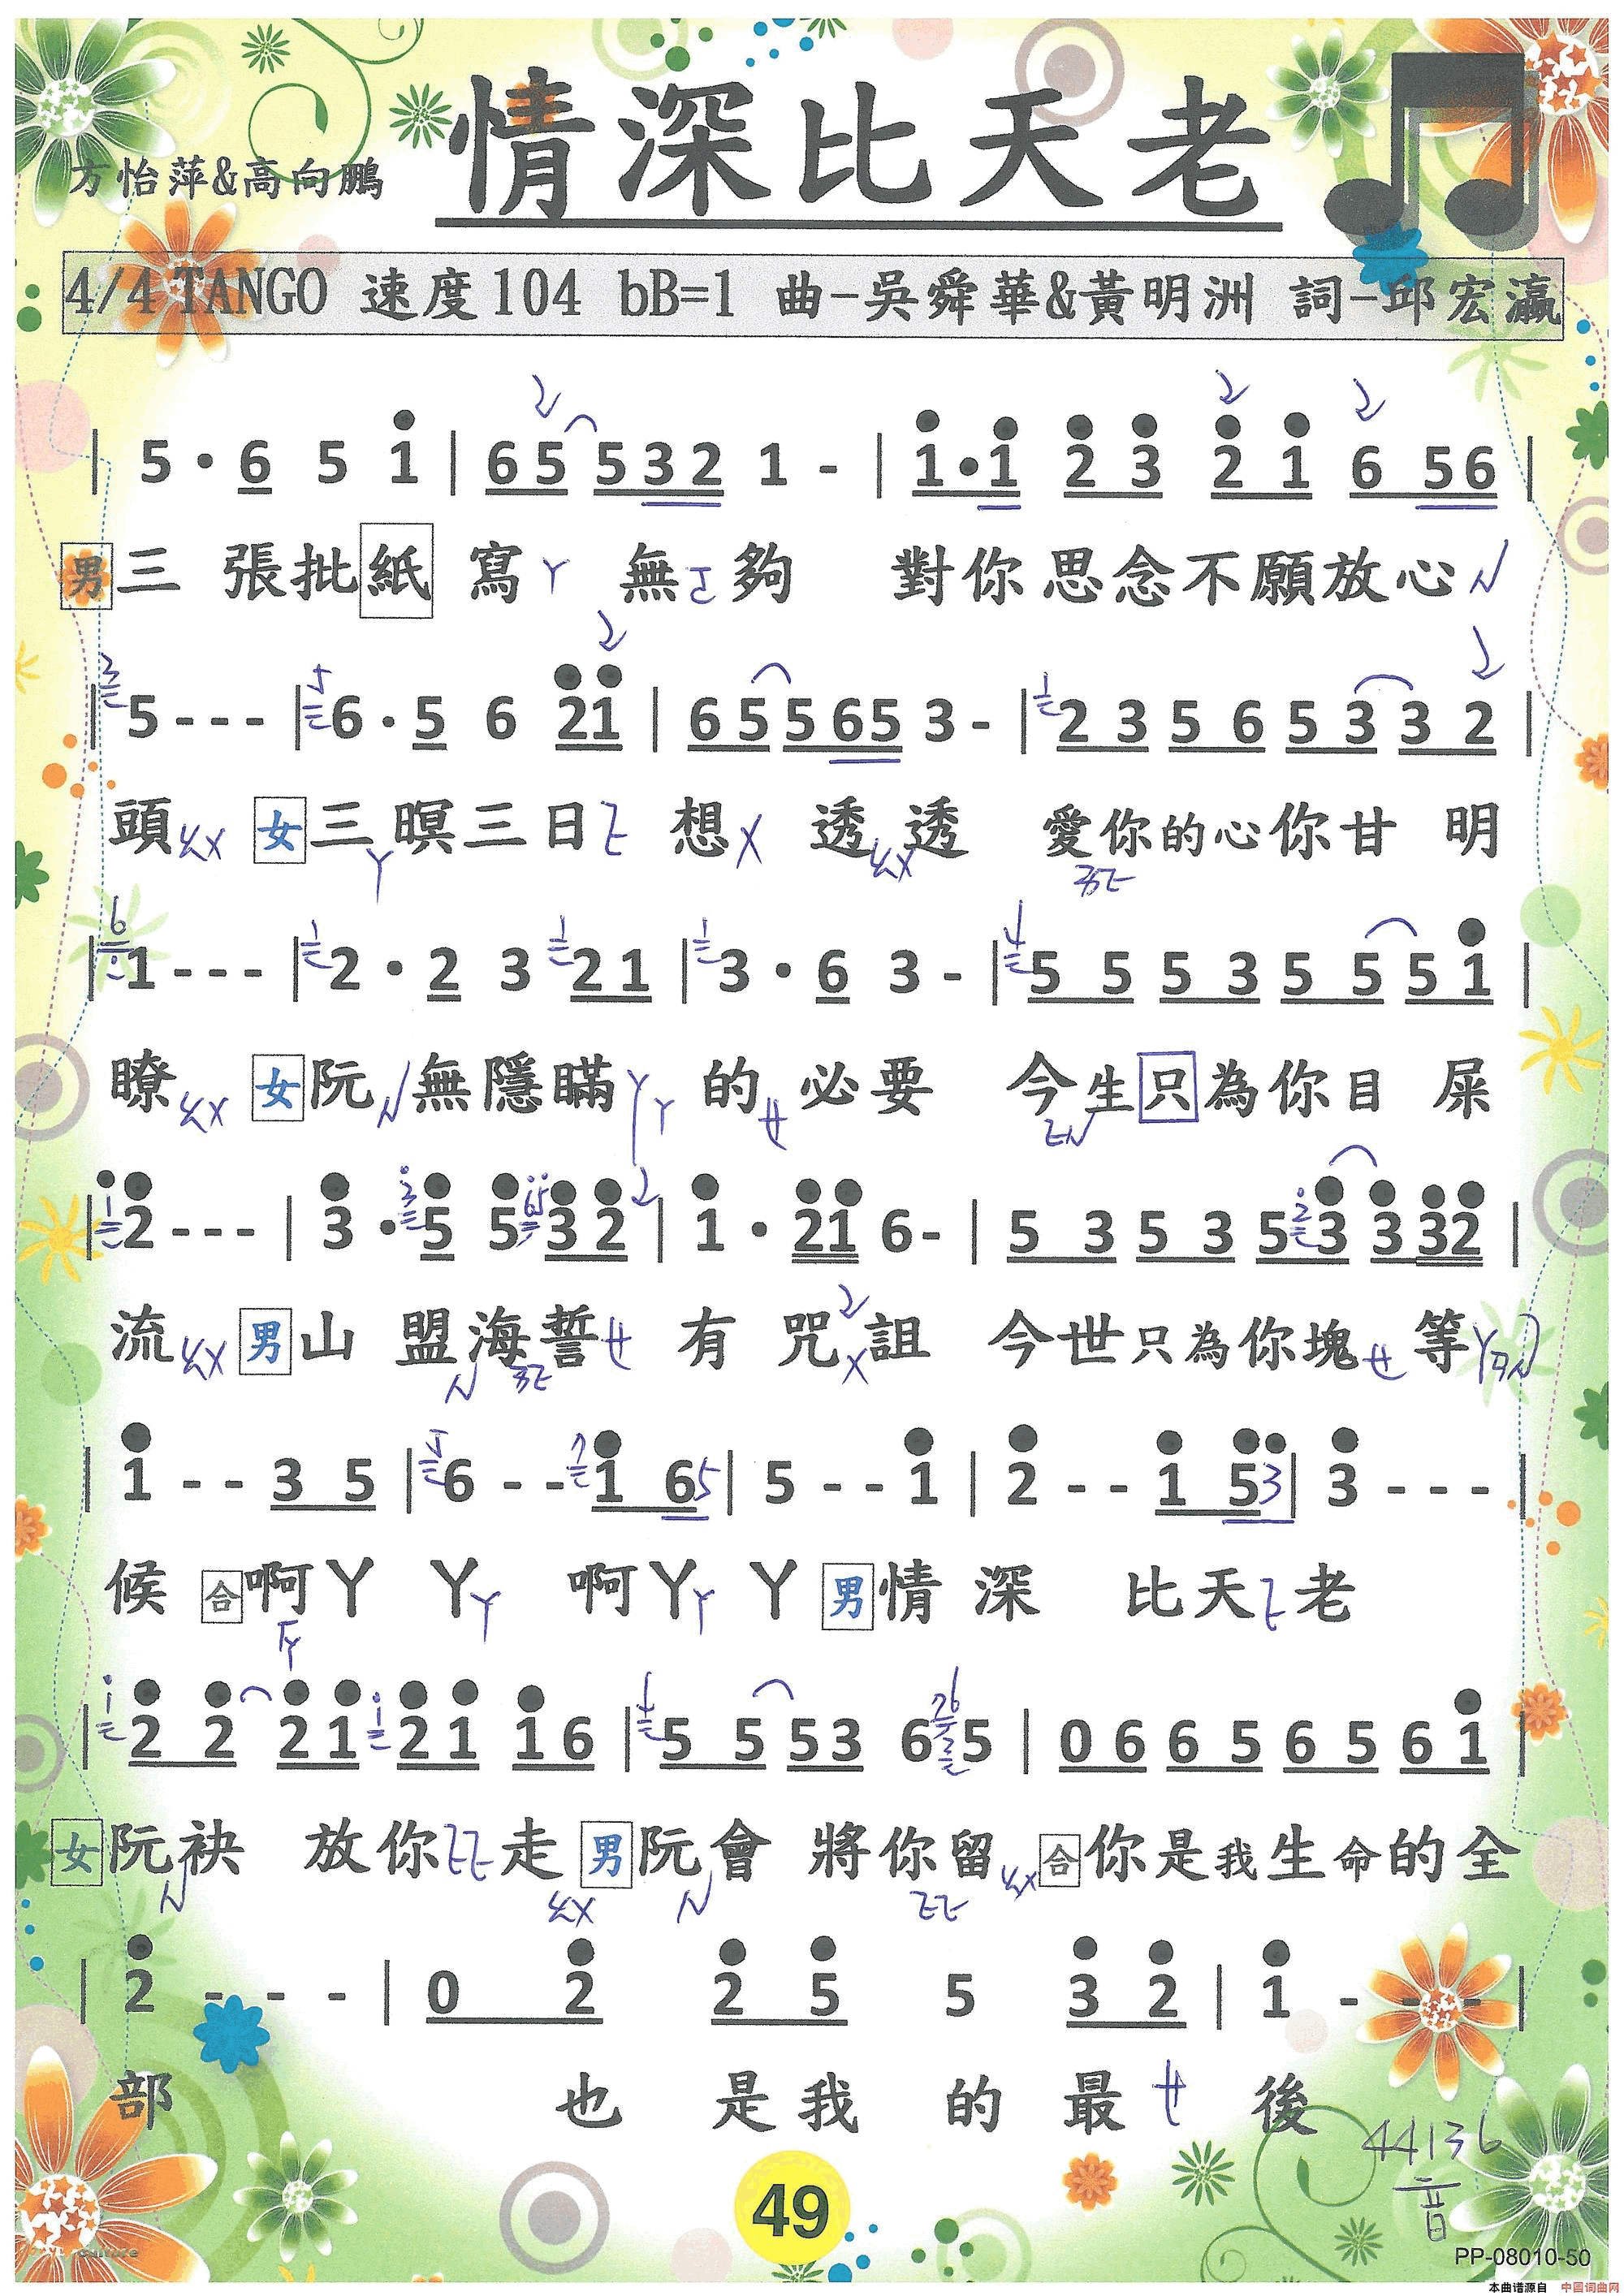 情深比天老
方怡萍&高向鵬
4/4 TANGO 速度104 bB=1 曲-吳舜華&黃明洲 詞-邱宏瀛
| 5 · 6 5 1 | 6 5 5 3 2 1 - | 1 · 1 2 3 2 1 6 5 6 |
男 三 張批紙 寫 ㄚ 無 ㄛ 夠 對你思念不願放心 ㄣ
| 5 - - - | 6 · 5 6 2 1 | 6 5 5 6 5 3 - | 2 3 5 6 5 3 3 2 |
頭 ㄠㄨ 女 三 ㄚ 暝三日 ㄜ 想 ㄨ 透 ㄠㄨ 透 愛你的心你甘 明
| 1 - - - | 2 · 2 3 2 1 | 3 · 6 3 - | 5 5 5 3 5 5 5 1 |
瞭 ㄠㄨ 女 阮 ㄣ 無隱瞞 ㄚ ㄚ 的 ㄝ 必要 今生只為你目 屎
| 2 - - - | 3 · 5 5 3 2 | 1 · 2 1 6 - | 5 3 5 3 5 3 3 3 2 |
流 ㄠㄨ 男 山 盟海誓 ㄝ 有 咒 ㄨ 詛 今世只為你塊 ㄝ 等
| 1 - - 3 5 | 6 - - 1 6 5 | 5 - - 1 | 2 - - 1 5 3 | 3 - - - |
候 合 啊ㄚ ㄚ ㄚ 啊ㄚ ㄚ ㄚ 男 情 深 比天 ㄜ 老
| 2 2 2 1 2 1 1 6 | 5 5 5 3 6 5 | 0 6 6 5 6 5 6 1 |
女 阮袂 放你 走 男 阮會 將你留 ㄠㄨ 合 你是我生命的全
| 2 - - - | 0 2 2 5 5 3 2 | 1 - - - |
部 也 是我 的 最 ㄝ 後
44136
音
49
PP-08010-50
本曲谱源自 中国词曲网